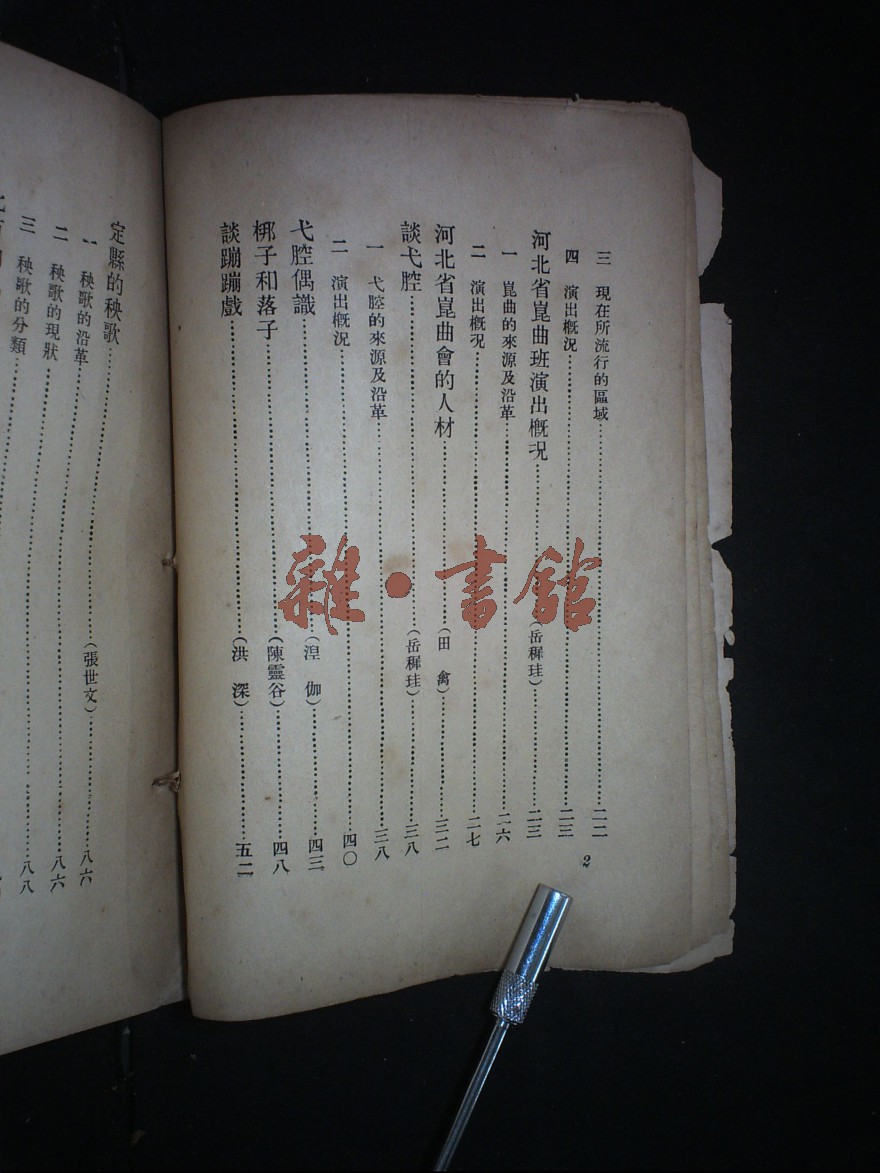 三　現在所流行的區域……二二
四　演出概況……二三
河北省崑曲班演出概況……(岳穉珪)……二三
一　崑曲的來源及沿革……二六
二　演出概況……二七
河北省崑曲會的人材……(田　禽)……三二
談弋腔……(岳穉珪)……三八
一　弋腔的來源及沿革……三八
二　演出概況……四〇
弋腔偶識……(湼　伽)……四三
梆子和落子……(陳靈谷)……四八
談蹦蹦戲……(洪　深)……五二
2
定縣的秧歌……(張世文)……八六
一　秧歌的沿革……八六
二　秧歌的現狀……八六
三　秧歌的分類……八八
雜·書館